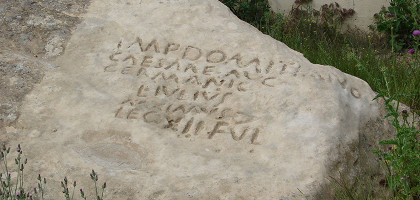 IMP DOMITIANO
CAESARE AVG
GERMANIC
LIVLIVS
MAXIMVS
LEG XII FVL